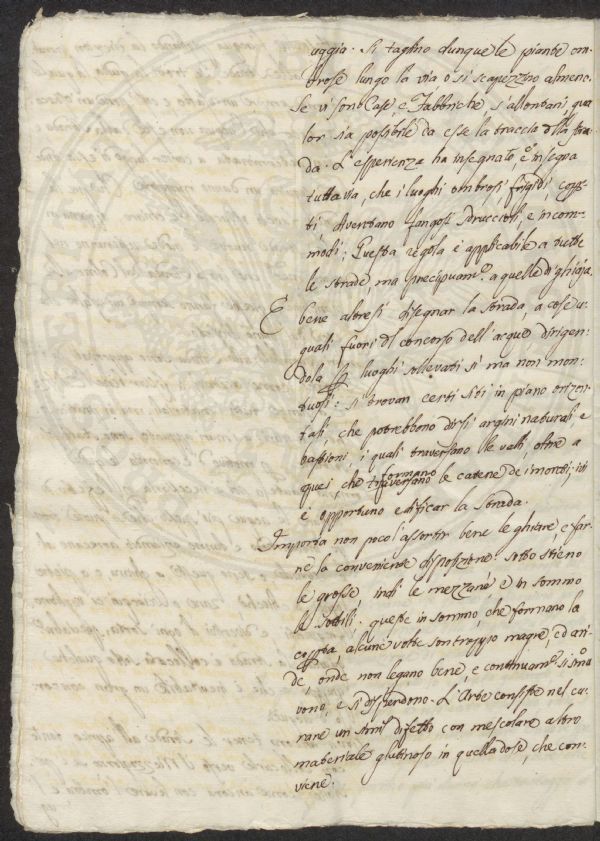 uggia. Si taglino dunque le piante om-
brose lungo la via o si scapezzino almeno.
Se vi sono Case e Fabbriche s'allontani qua
lor sia possibile da esse la traccia della stra
da. L'esperienza ha insegnato, e insegna
tuttavia, che i luoghi ombrosi, frigidi, coper-
ti diventano fangosi sdruccioli, e incom-
modi; Questa regola è applicabile a tutte
le strade, ma precipuam.e a quelle di ghiaja.
E bene altresì disegnar la strada, a cose u-
guali fuori del concorso dell'acque dirigen-
dola per luoghi sollevati sì ma non mon-
tuosi: si trovan certi siti in piano orizon-
tali, che potrebbono dirsi argini naturali e
bastioni, i quali traversano le valli, oltre a
quei, che formano le catene de' monti, ivi
è opportuno edificar la strada.
Importa non poco l'assortir bene le ghiare, e far-
ne la conveniente disposizione: sotto stieno
le grosse, indi le mezzane e in sommo
le sottili. queste in sommo, che formano la
coppa, alcune volte son troppo magre, ed ari-
de, onde non legano bene, e continuam.e si smo
vono, e si disperdono. L'Arte consiste nel cu-
rare un simil difetto con mescolare altro
materiale glutinoso in quella dose, che con-
viene.